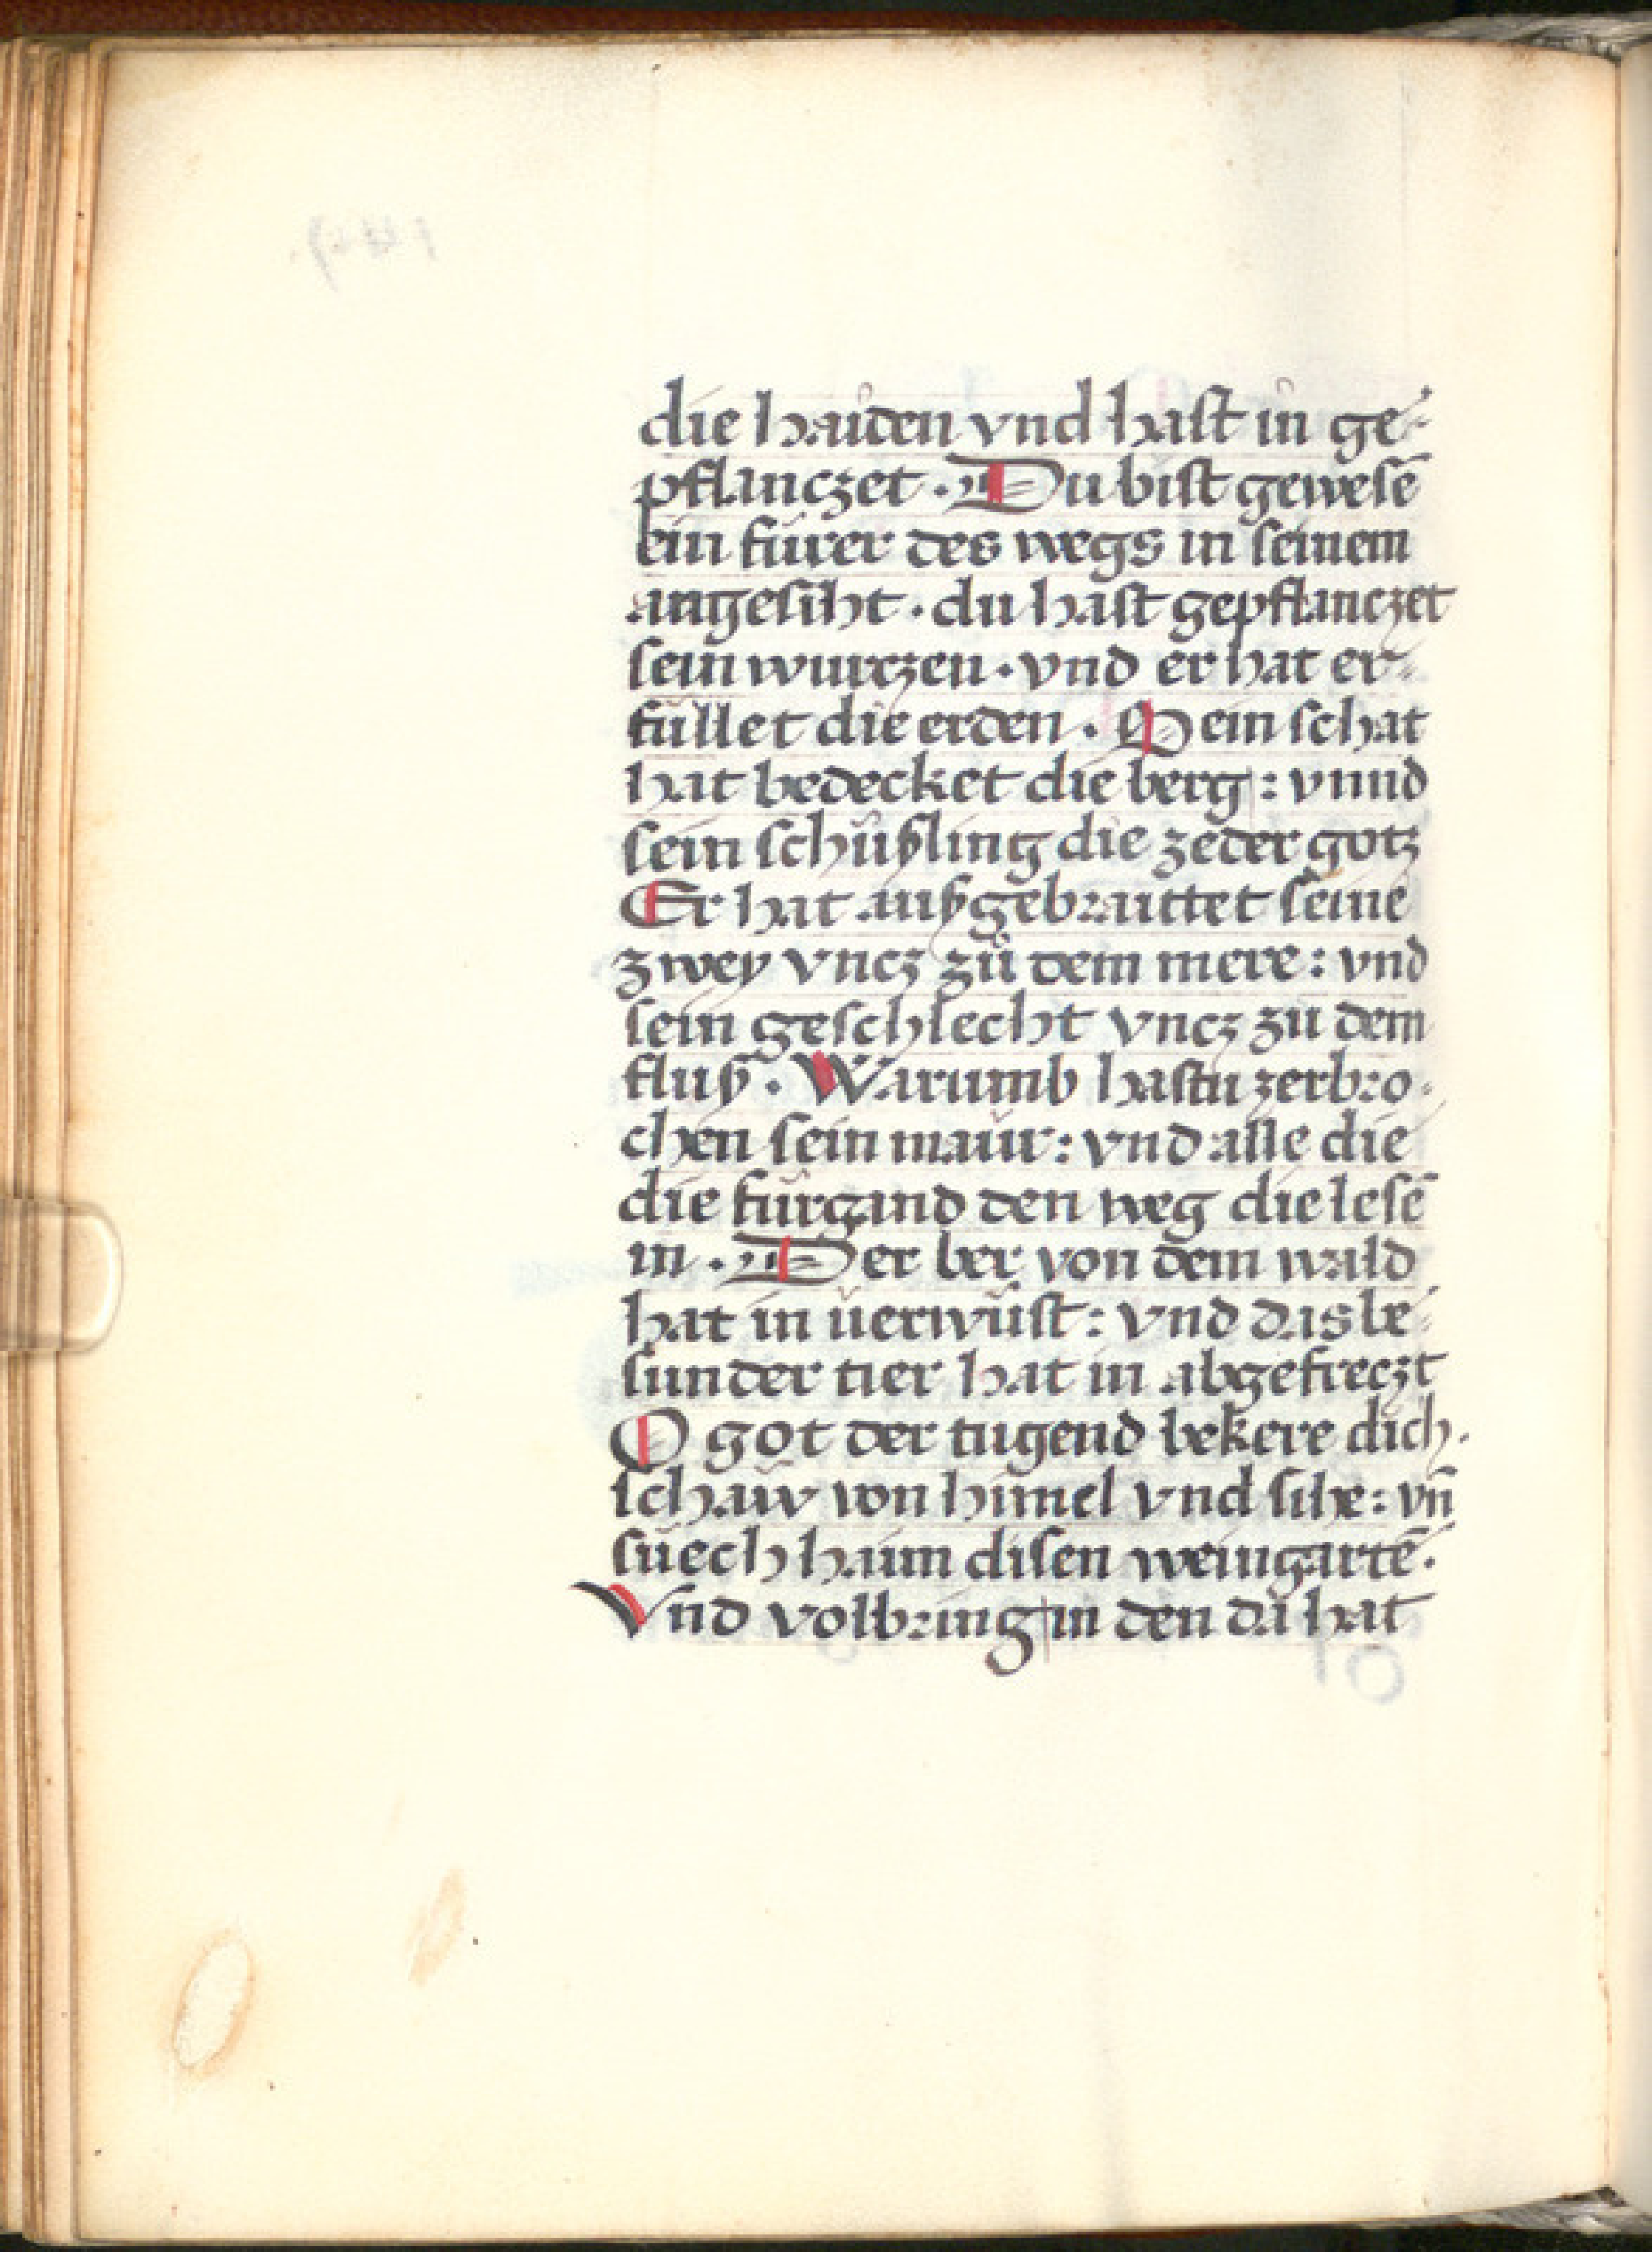 die haiden vnd hast in ge-
pflanczet · Du bist gewesē
ein fürer des wegs in seinem
angesiht · du hast gepflanczet
sein wurczen · vnd er hat er-
füllet die erden · Sein schat
hat bedecket die berg : vnnd
sein schüßling die zeder gotz
Er hat außgebraittet seine
zwey vncz zů dem mere : vnd
sein geschlecht vncz zu dem
fluß · Warumb hastu zerbro-
chen sein maur : vnd alle die
die fürgand den weg die lesē
in · Der ber von dem wald
hat in üerwüst : vnd das be-
sunder tier hat in abgefreczt
O got der tugend bekere dich ·
schaw von himel vnd sihe : vn̄
süech haim disen weingartē ·
Vnd volbring in den da hat